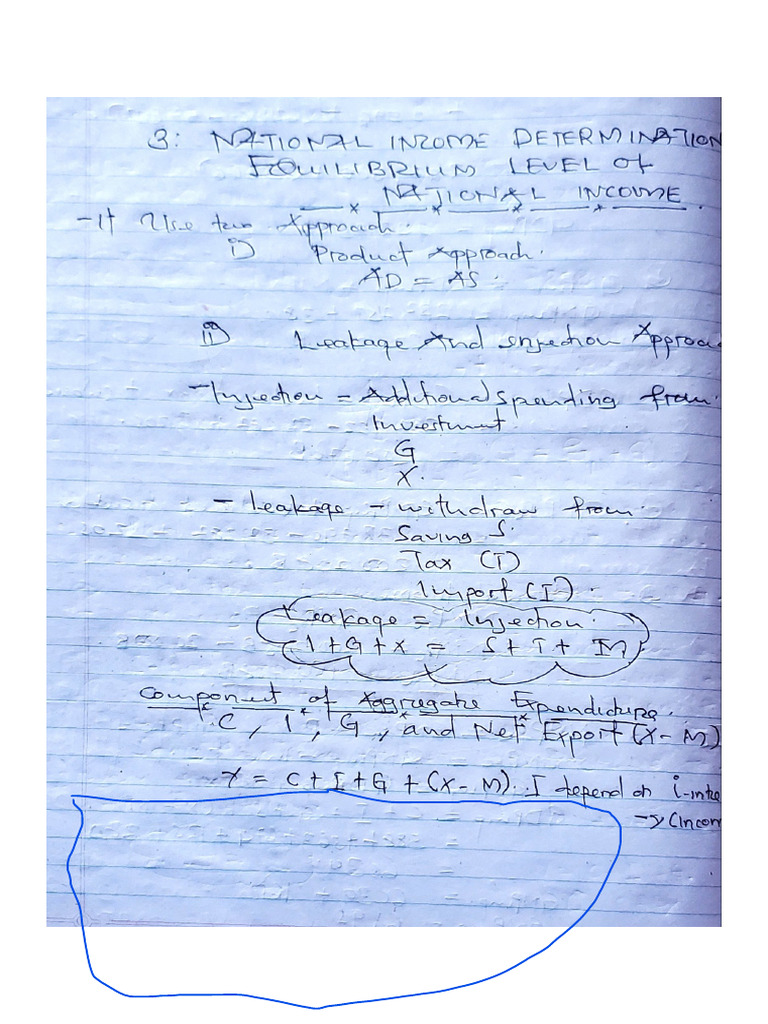 3: NATIONAL INCOME DETERMINATION
EQUILIBRIUM LEVEL OF
NATIONAL INCOME.
-It Use two Approach.
i) Product Approach.
AD = AS.
ii) Leakage And Injection Approac
-Injection - Additional spending from.
Investment
G
X.
- Leakage - withdraw from.
Saving S.
Tax (T)
Import (I).
Leakage = Injection.
I+G+X = S+T+M
Component of Aggregate Expenditure.
C, I, G, and Net Export (X-M)
Y = C+I+G+(X-M). I depend on i-inte
-y(Incom